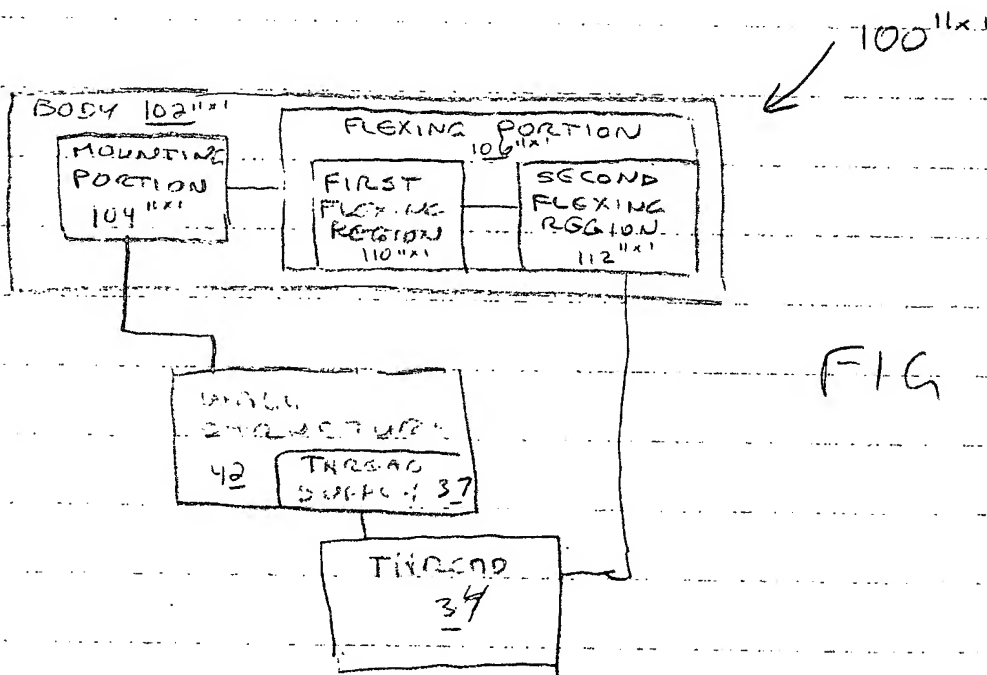 100''x'
BODY 102''x'
FLEXING PORTION
106''x'
MOUNTING
PORTION
104''x'
FIRST
FLEXING
REGION
110''x'
SECOND
FLEXING
REGION
112''x'
FIG
WALL
STRUCTURE
42
THREAD
SUPPLY 37
THREAD
34